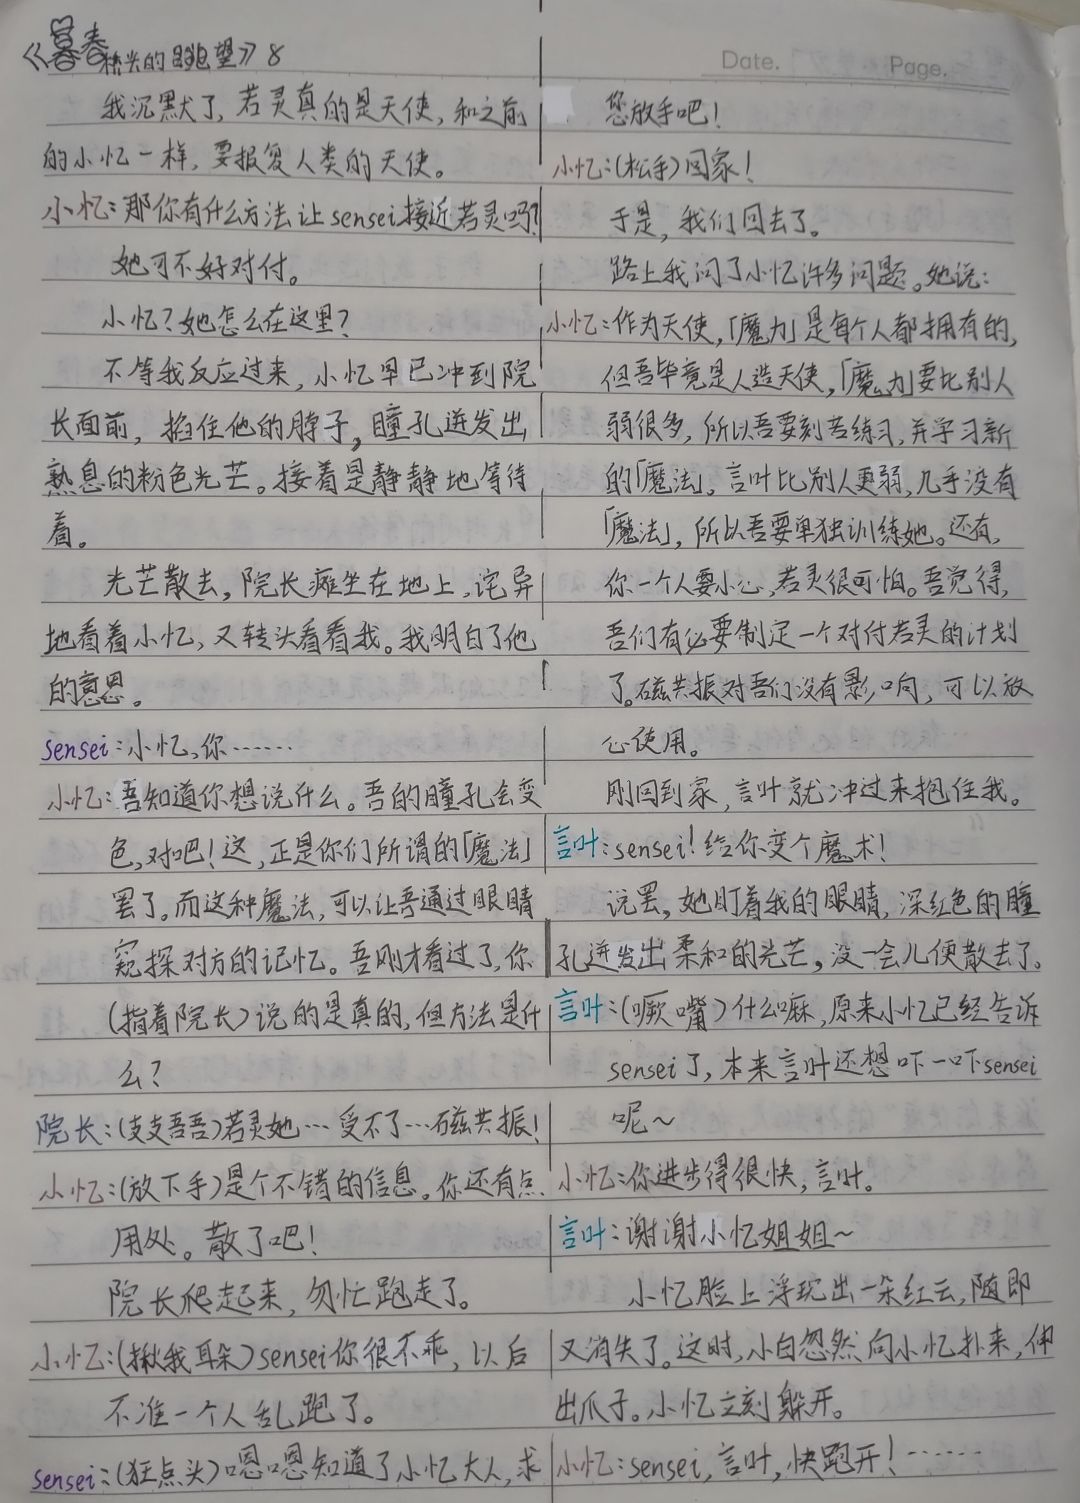 《暮春桥头的眺望》8
我沉默了，若灵真的是天使，和之前
的小忆一样，要报复人类的天使。
小忆：那你有什么方法让sensei接近若灵吗？
她可不好对付。
小忆？她怎么在这里？
不等我反应过来，小忆早已冲到院
长面前，掐住他的脖子，瞳孔迸发出
熟息的粉色光芒。接着是静静地等待
着。
光芒散去，院长瘫坐在地上，诧异
地看着小忆，又转头看看我。我明白了他
的意思。
sensei：小忆，你……
小忆：吾知道你想说什么。吾的瞳孔会变
色，对吧！这，正是你们所谓的「魔法」
罢了。而这种魔法，可以让吾通过眼睛
窥探对方的记忆。吾刚才看过了，你
（指着院长）说的是真的，但方法是什
么？
院长：（支支吾吾）若灵她…受不了…磁共振！
小忆：（放下手）是个不错的信息。你还有点
用处。散了吧！
院长爬起来，匆忙跑走了。
小忆：（揪我耳朵）sensei你很不乖，以后
不准一个人乱跑了。
sensei：（狂点头）嗯嗯知道了小忆大人，求
Date.
Page.
您放手吧！
小忆：（松手）回家！
于是，我们回去了。
路上我问了小忆许多问题。她说：
小忆：作为天使，「魔力」是每个人都拥有的，
但吾毕竟是人造天使，「魔力」要比别人
弱很多，所以吾要刻苦练习，并学习新
的「魔法」。言叶比别人更弱，几乎没有
「魔法」，所以吾要单独训练她。还有，
你一个人要小心，若灵很可怕。吾觉得，
吾们有必要制定一个对付若灵的计划
了。磁共振对吾们没有影响，可以放
心使用。
刚回到家，言叶就冲过来抱住我。
言叶：sensei！给你变个魔术！
说罢，她盯着我的眼睛，深红色的瞳
孔迸发出柔和的光芒，没一会儿便散去了。
言叶：（噘嘴）什么嘛，原来小忆已经告诉
sensei了，本来言叶还想吓一吓sensei
呢～
小忆：你进步得很快，言叶。
言叶：谢谢小忆姐姐～
小忆脸上浮现出一朵红云，随即
又消失了。这时，小白忽然向小忆扑来，伸
出爪子。小忆立刻躲开。
小忆：sensei，言叶，快跑开！……